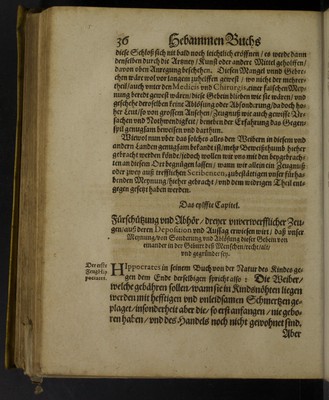 36 Hebammen Buchs
diese Schloß sich nit bald noch leichtlich eröffnen / es werde dann
denselben durch die Artzney / Kunst oder andere Mittel geholffen /
davon oben Anregung beschehen. Diesen Mangel vnnd Gebre-
chen wäre wol vor langem zuhelffen gewest / wo nicht der mehrer-
theil / auch vnter den Medicis vnd Chirurgis, einer falschen Mey-
nung beredt gewest wären / diese Gebein blieben wie sie wären / vnd
geschehe derselben keine Ablösung oder Absonderung / da doch ho-
her Leut / so von grossem Ansehen / Zeugnuß wie auch gewisse Vr-
sachen vnd Nothwendigkeit / beneben der Erfahrung das Gegen-
spil genugsam beweisen vnd darthun.
Wiewol nun vber das solches alles den Weibern in diesem vnd
andern Landen genugsam bekandt ist / mehr Beweißthumb hieher
gebracht werden könte / jedoch wollen wir vns mit den beygebrach-
ten an diesem Ort begnügen lassen / wann wir allein ein Zeugnuß
oder zwey auß trefflichen Scribenten, zubestättigen vnser fürha-
benden Meynung / hieher gebracht / vnd dem widrigen Theil ent-
gegen gesetzt haben werden.
Das eylffte Capitel.
Fürschützung vnd Abhör / dreyer vnverwerfflicher Zeu-
gen / auß deren Deposition vnd Aussag erwiesen wirt / daß vnser
Meynung / von Sonderung vnd Ablösung dieser Gebein von
einander in der Geburt deß Menschen / recht / alt /
vnd gegründet sey.
Der erste
Zeug Hip-
pocrates.
Hippocrates in seinem Buch von der Natur des Kindes ge-
gen dem Ende desselbigen spricht also: Die Weiber /
welche gebähren sollen / wann sie in Kindsnöhten liegen
werden mit hefftigen vnd vnleidsamen Schmertzen ge-
plaget / insonderheit aber die / so erst anfangen / nie gebo-
ren haben / vnd des Handels noch nicht gewohnet sind.
Aber